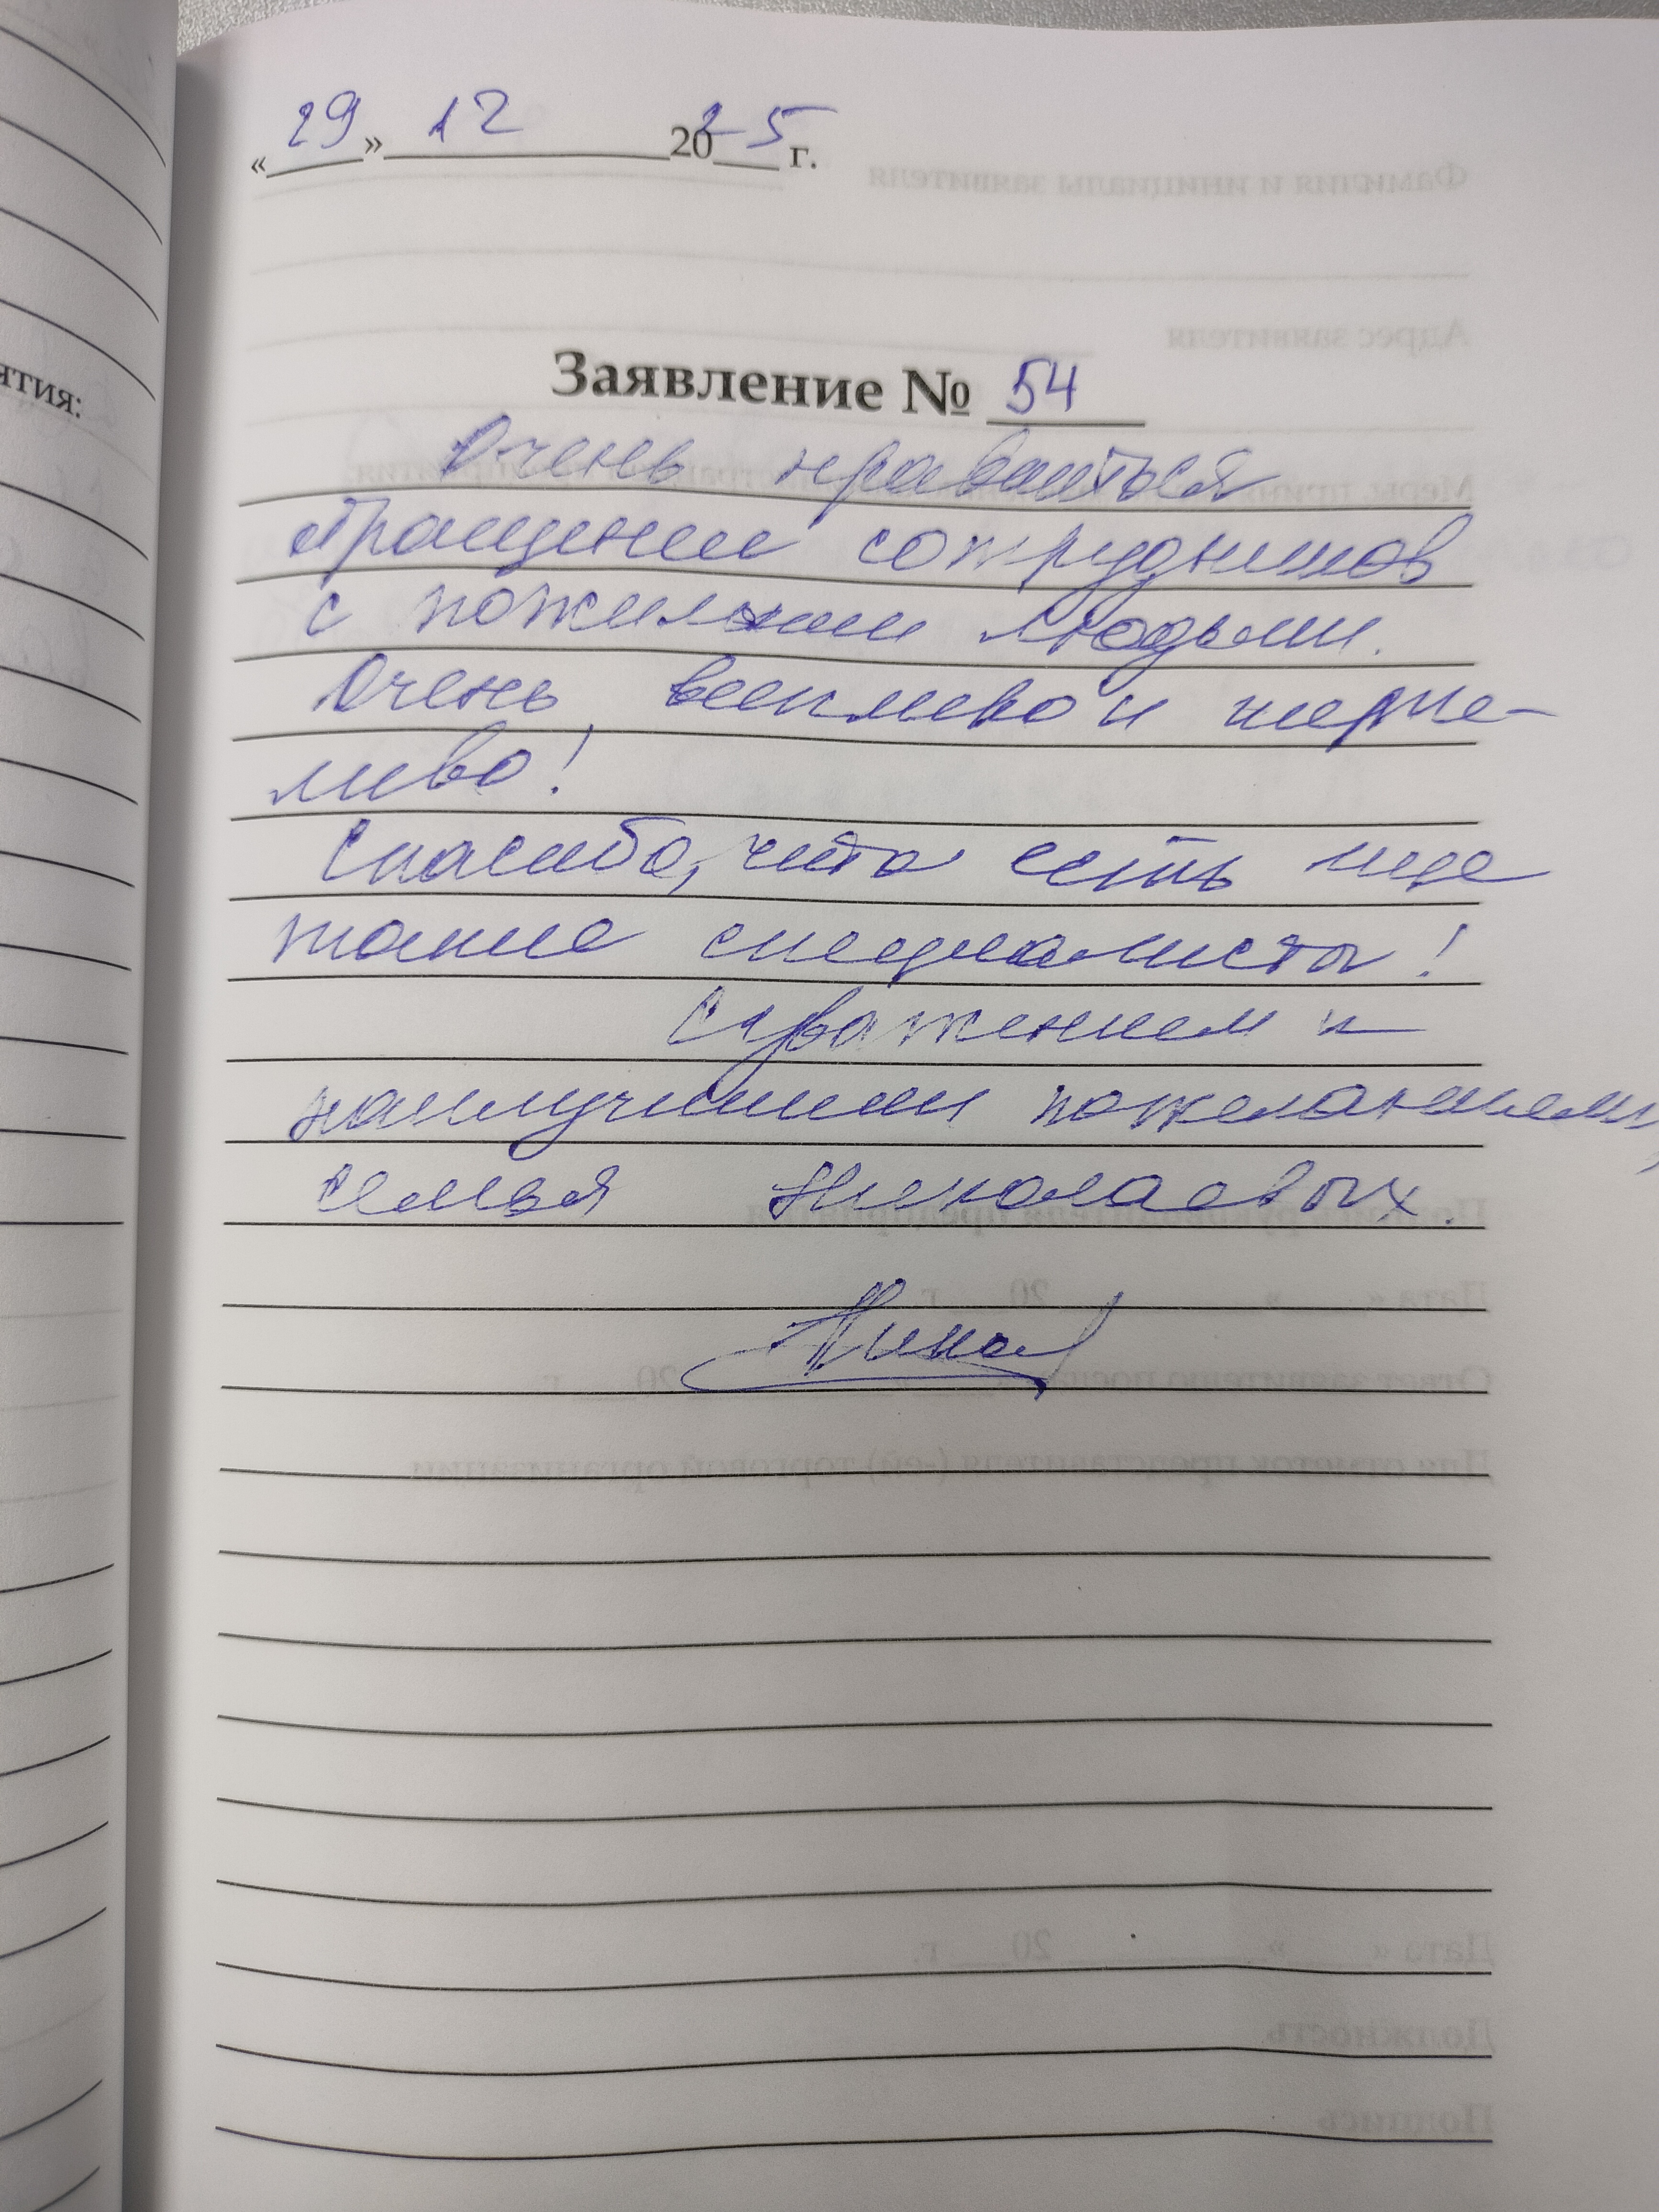 «29» 12 2025 г.
Заявление № 54
Очень нравиться
обращение сотрудников
с пожилыми людьми.
Очень вежливо и терпе-
ливо!
Спасибо, что есть еще
такие специалисты!
С уважением и
наилучшими пожеланием,
семья Николаевых.
ятия: